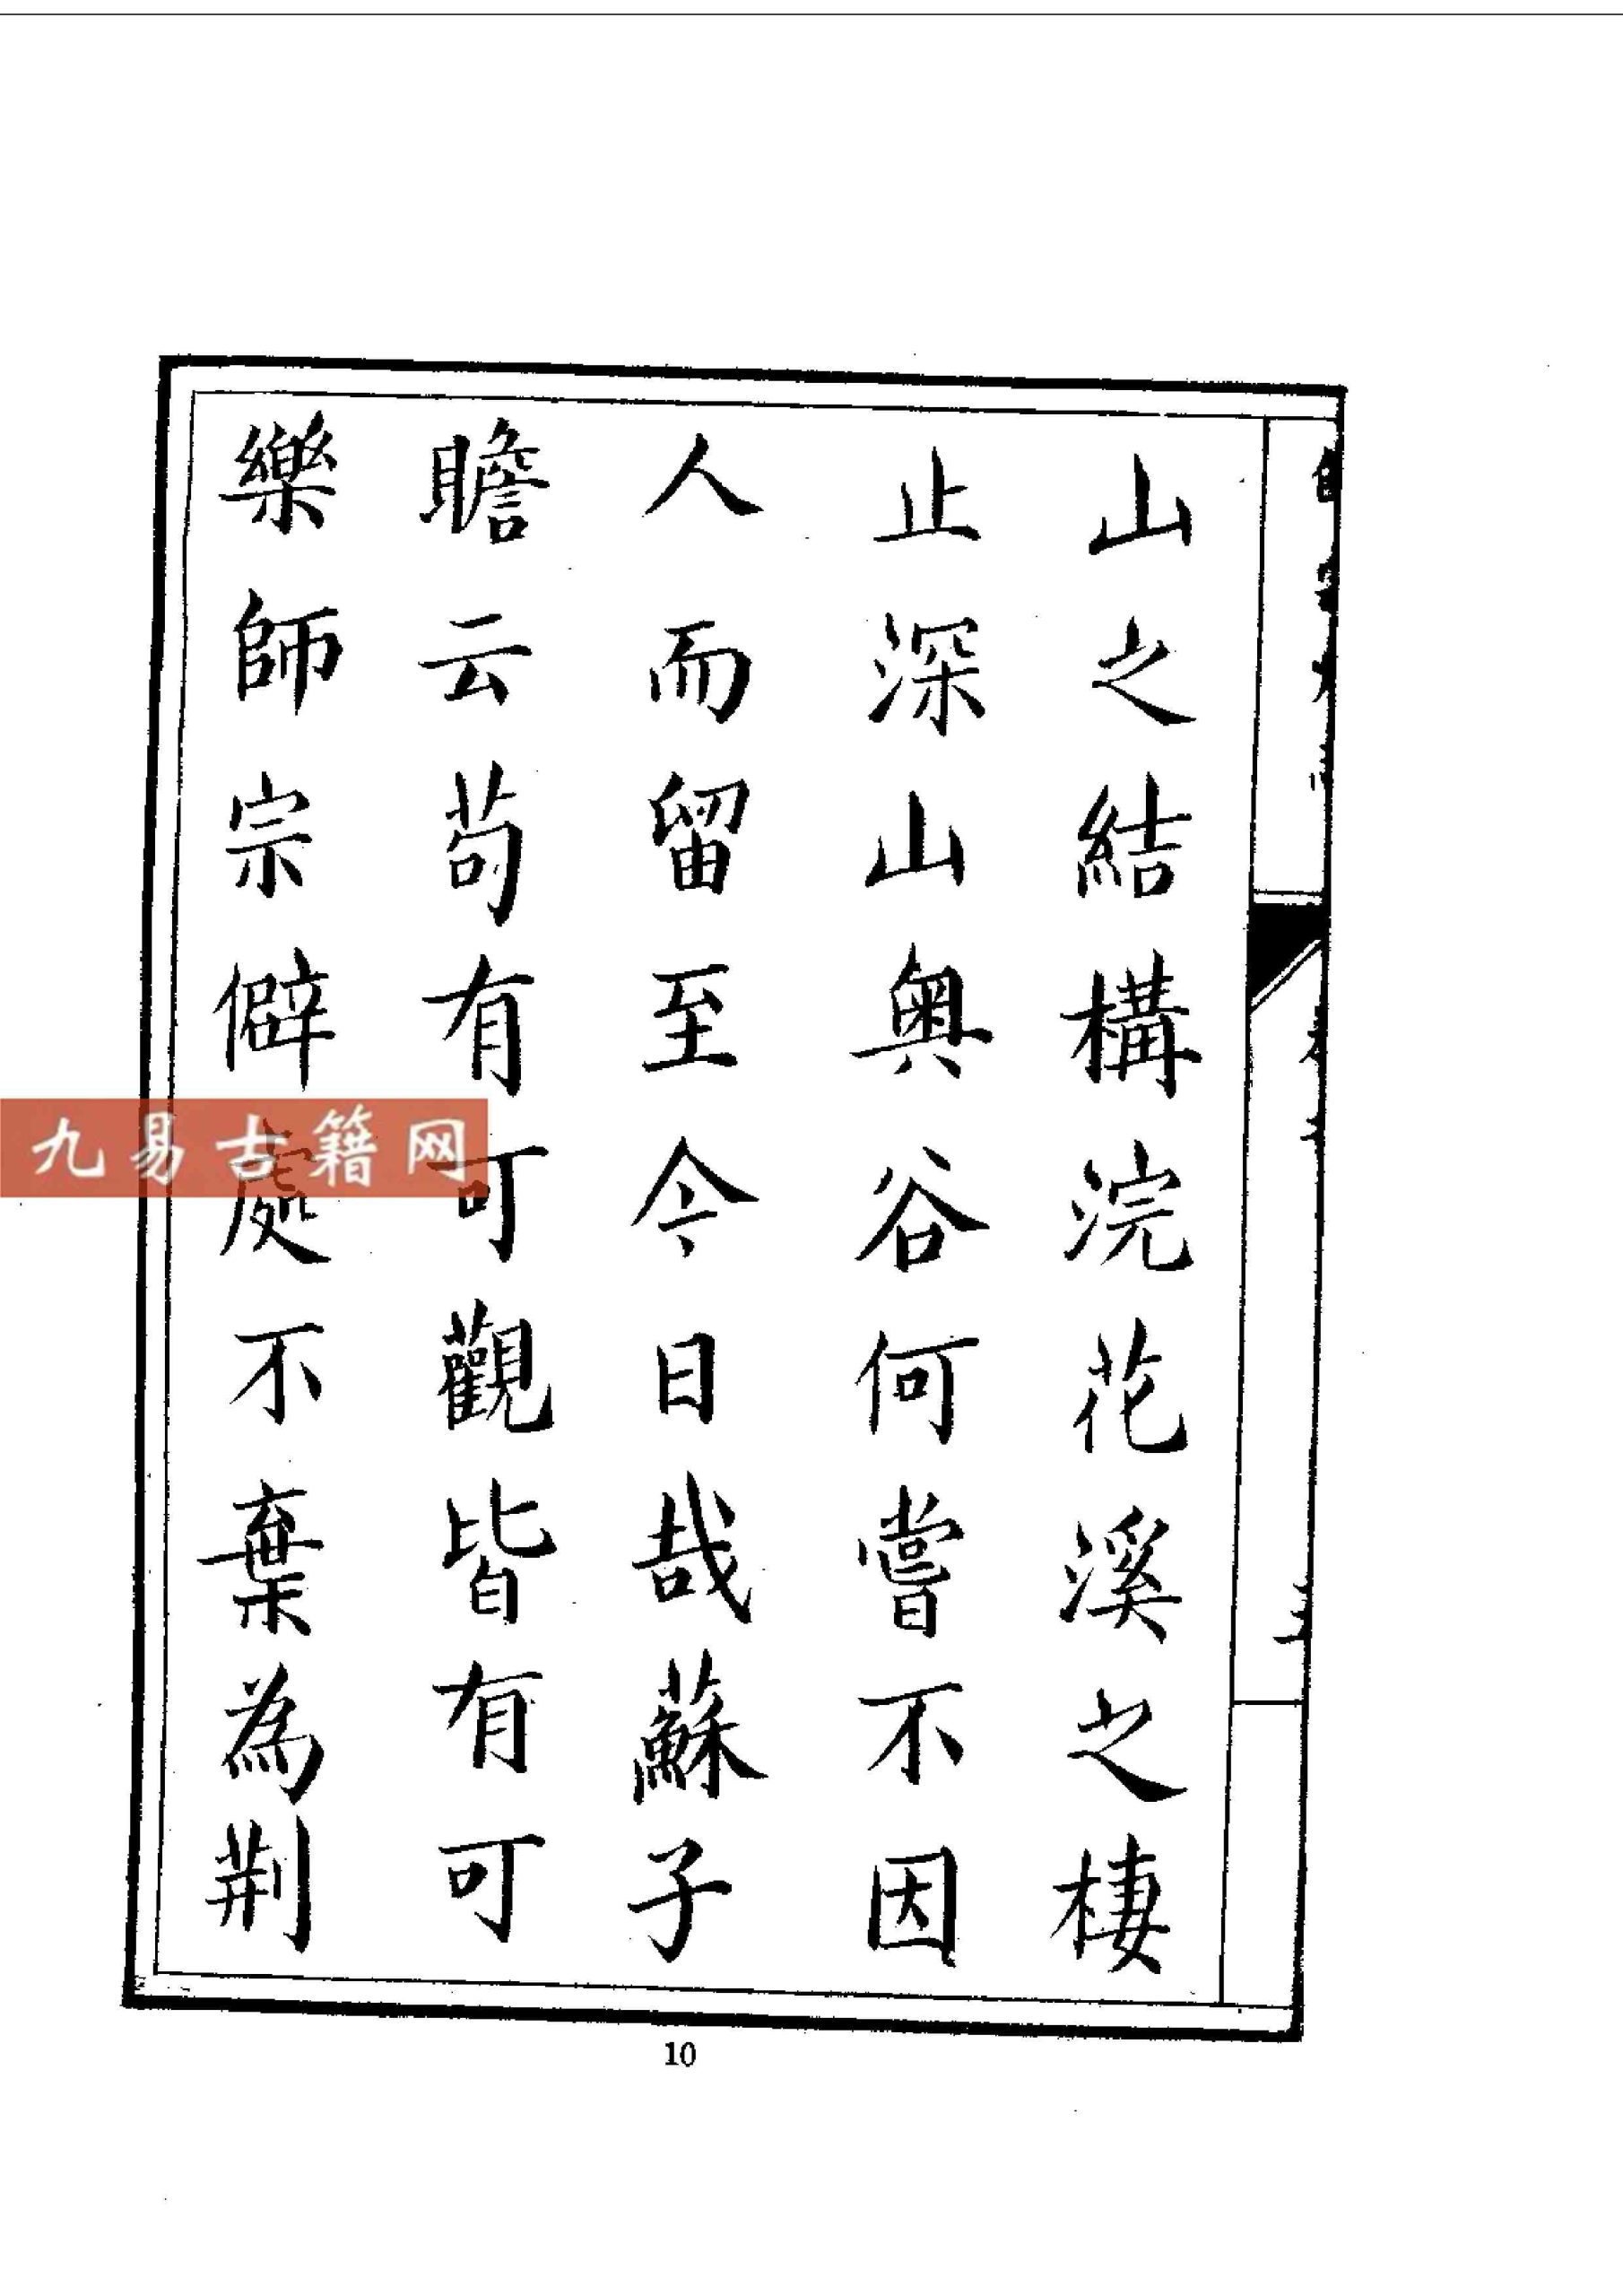 山之結構浣花溪之棲
止深山奥谷何嘗不因
人而留至今日哉蘇子
瞻云苟有可觀皆有可
樂師宗僻處不棄為荆
九易古籍网
10